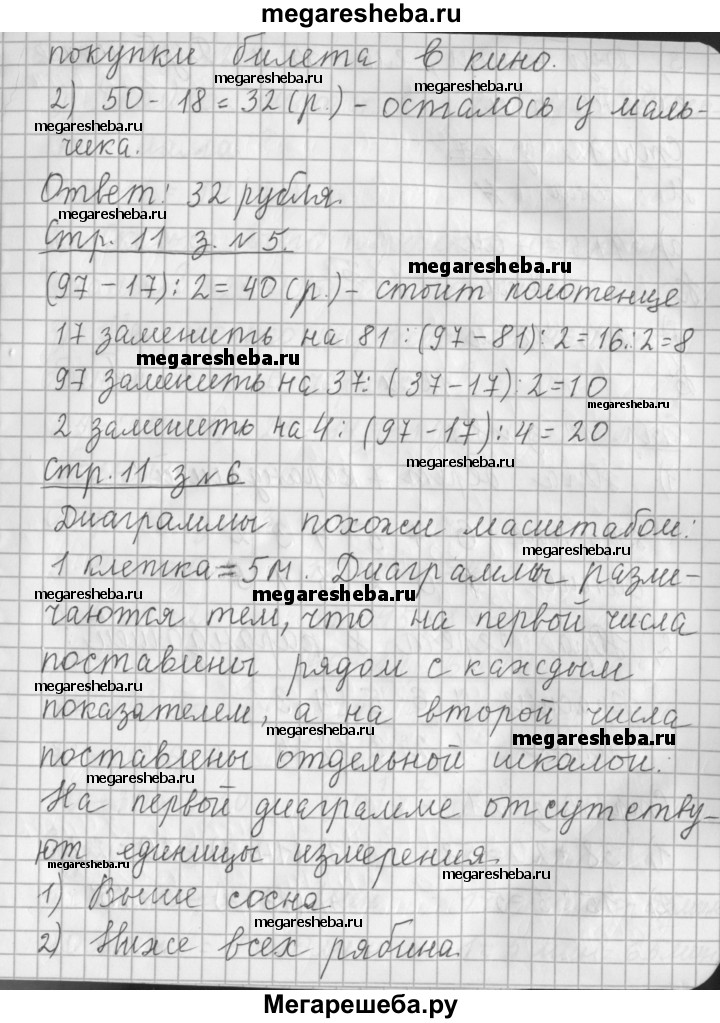 megaresheba.ru
покупки билета в кино.
megaresheba.ru megaresheba.ru
2) 50 - 18 = 32 (р.) - осталось у маль-
megaresheba.ru megaresheba.ru
чика.
Ответ: 32 рубля.
megaresheba.ru
Стр. 11 з. № 5.
megaresheba.ru
(97 - 17) : 2 = 40 (р.) - стоит полотенце
17 заменить на 81 : (97 - 81) : 2 = 16 : 2 = 8
megaresheba.ru
97 заменить на 37: (37 - 17) : 2 = 10
megaresheba.ru
2 заменить на 4: (97 - 17) : 4 = 20
megaresheba.ru
Стр. 11 з № 6
Диаграммы похожи масштабом:
megaresheba.ru
1 клетка = 5м. Диаграммы разли-
megaresheba.ru megaresheba.ru megaresheba.ru
чаются тем, что на первой числа
поставины рядом с каждым
megaresheba.ru megaresheba.ru
показателем, а на второй числа
megaresheba.ru megaresheba.ru
поставлены отдельной шкалой.
megaresheba.ru
На первой диаграмме отсутству-
ют единицы измерения.
megaresheba.ru megaresheba.ru
1) Выше сосна
megaresheba.ru
2) Ниже всех рябина.
megaresheba.ru megaresheba.ru
Мегарешеба.ру